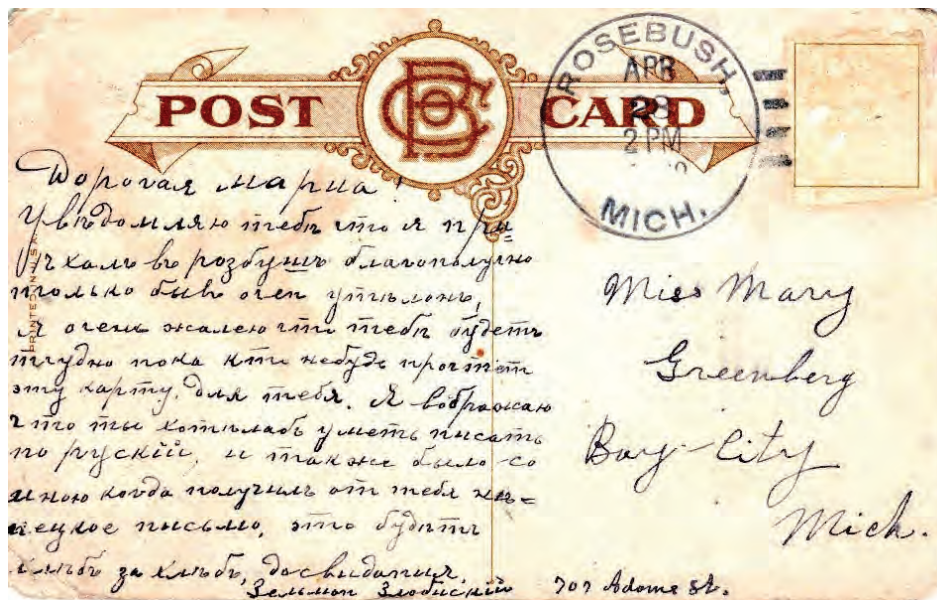 POST CARD
ROSEBUSH,
APR
28
2 PM
MICH.
PRINTED IN U.S.A.
Дорогая мариа!
Увѣдомляю тебѣ что я при=
ѣхалъ въ розбушъ благополучно
только бывъ очен утѣмлонъ,
Я очень жалею что тебѣ будетъ
трудно пока кто небудь прочтет
эту карту, для тебя. Я вображаю
что ты хотѣлабъ уметь писать
по рускій, и также было со
мною когда получилъ от тебя нѣ=
мецкое письмо, это будетъ
хлѣбъ за хлѣбъ, досвидания.
Зельман Злобискій
Miss Mary
Greenberg
Bay-City
Mich.
707 Adams St.